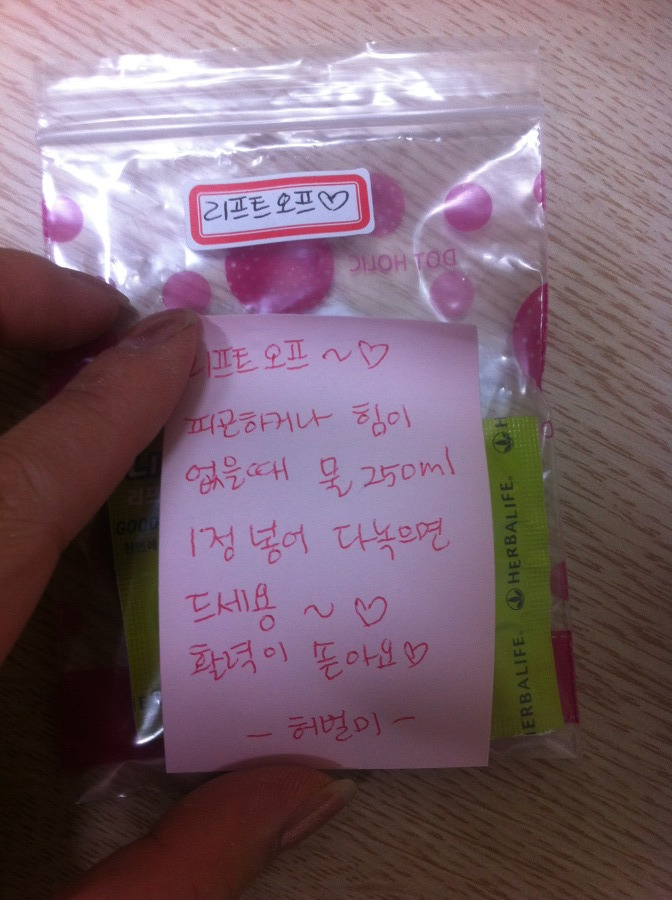 리프트오프♡
DOT HOLIC
리프트 오프 ~ ♡
피곤하거나 힘이
없을때 물 250ml
1정 넣어 다녹으면
드세용 ~ ♡
활력이 솓아요♡
- 허벌미 -
GOOD
HERBALIFE.
HERBALIFE.
H